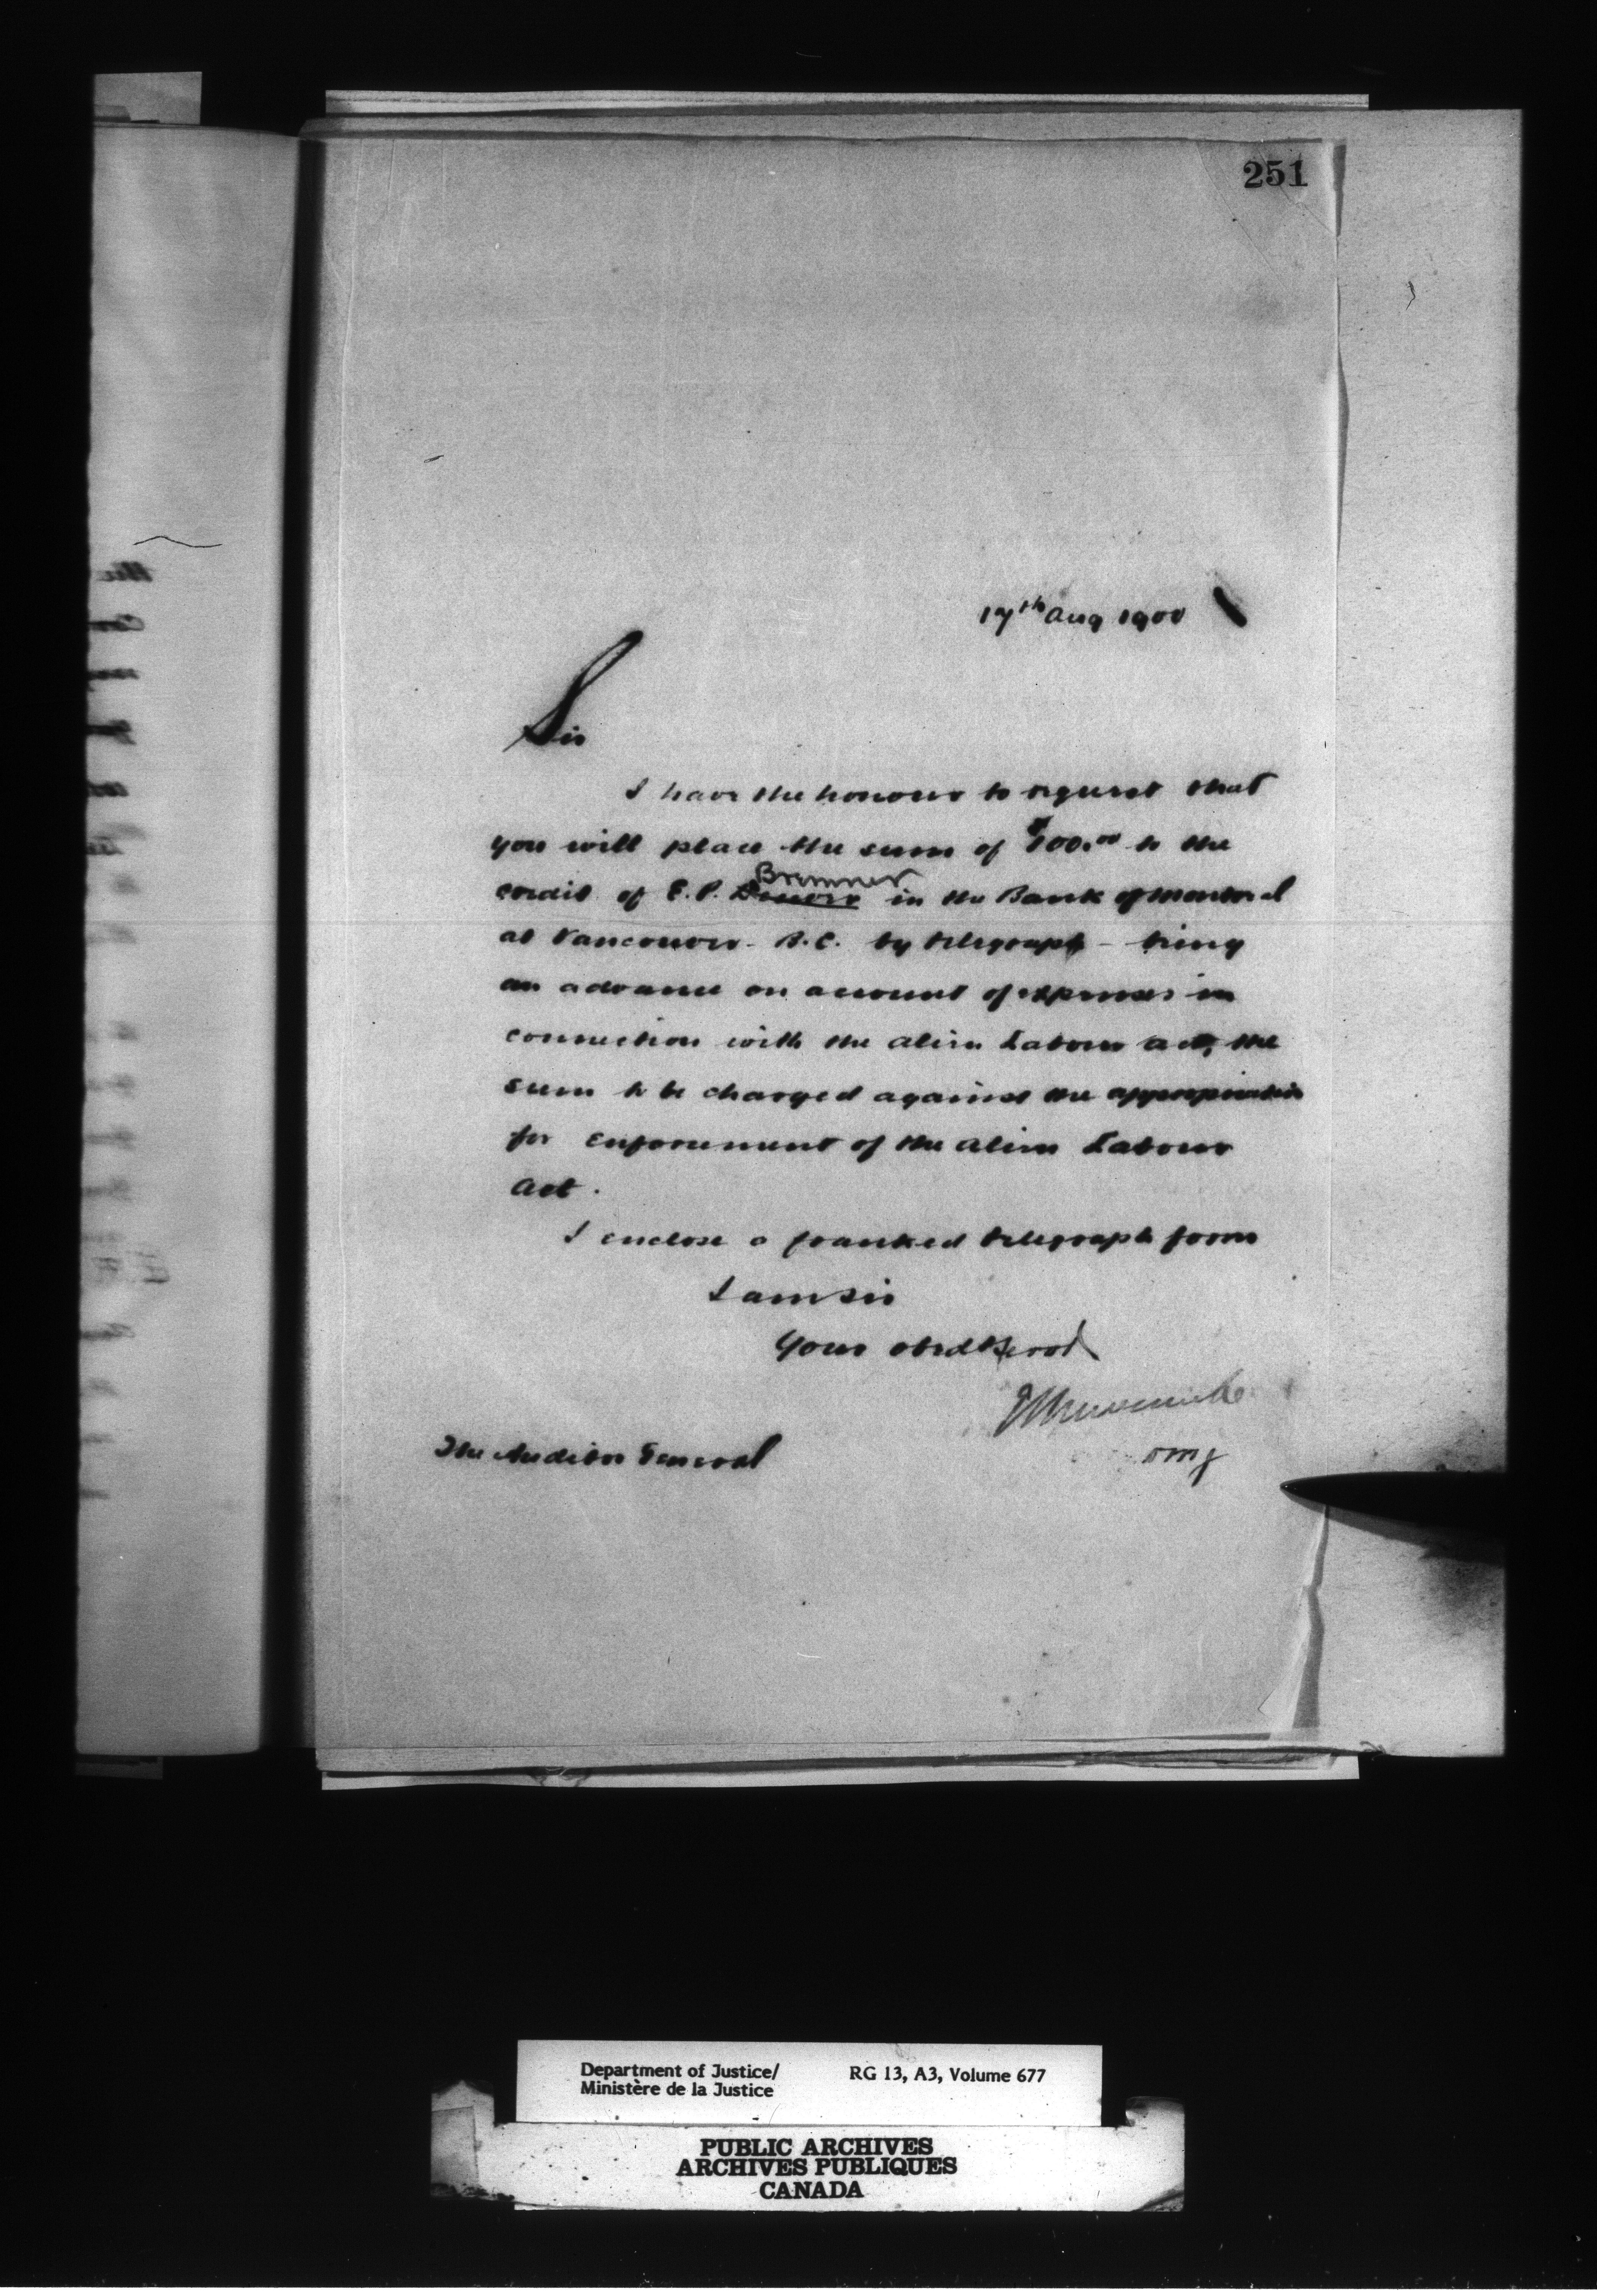 251
17th Aug 1900
Sir
I have the honour to request that
you will place the sum of $100.00 to the
Bremner
credit of E. P. in the Bank of Montreal
at Vancouver - B.C. by telegraph - being
an advance on account of expenses in
connection with the Alien Labour Act, the
sum to be charged against the appropriation
for enforcement of the Alien Labour
Act.
I enclose a franked telegraph form
I am Sir
Your obedt Servt
The Auditor General
DMJ
Department of Justice/ RG 13, A3, Volume 677
Ministère de la Justice
PUBLIC ARCHIVES
ARCHIVES PUBLIQUES
CANADA